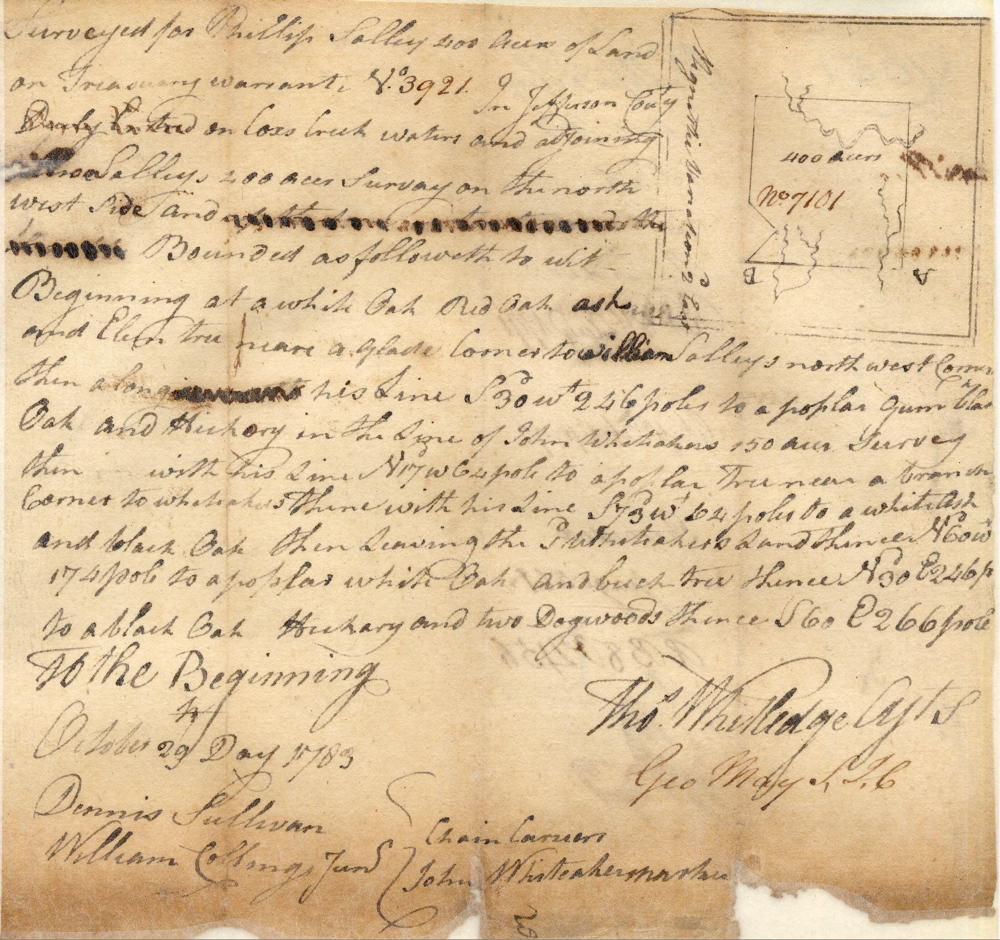 Surveyed for Phillip Solley 400 Acres of Land
on Treasury warrant No. 3921. In Jefferson Couty
on Coxs Creek waters and adjoining
Solleys 400 acer Survay on the north
west side and
Bounded as followeth to wit
Beginning at a white Oak Red Oak ash
and Elem tree neare a glade Corner to william Solleys north west Corner
then along his Line S 30 wt 246 poles to a poplar Gum blac
Oak and Hickory in the Line of John Whiteakers 150 acer Survey
then with his Line N 17 w 64 pole to a poplar Tree near a branch
Corner to whiteakers thence with his Line S 73 wt 64 poles to a white Ash
and black Oak then Leaving the sd Whiteakers Land thence N 60 w
174 pole to a poplar white Oak and beech tree thence N 30 E 246 p
to a black Oak Hickary and two Dogwoods thence S 60 E 266 pole
To the Beginning
October 29th Day 1783
Thos. Whitledge Asst S
Geo May S. J. C
Dennis Sullivan
William Collings Junr
Chain Carriers
John Whiteaker marker
Magnettic Variation 2d East
400 acers
No 7101
B
A